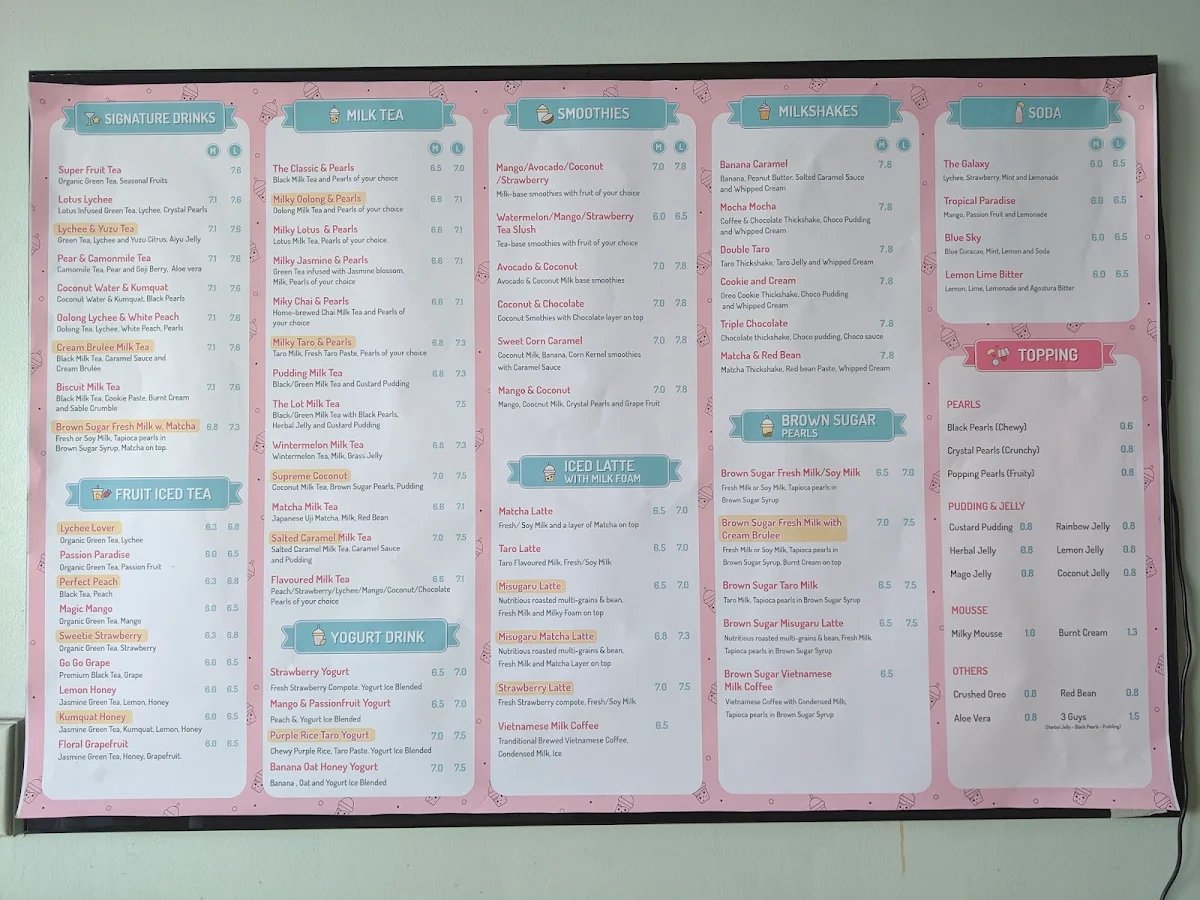 SIGNATURE DRINKS
M L
Super Fruit Tea 7.6
Organic Green Tea, Seasonal Fruits
Lotus Lychee 7.1 7.6
Lotus Infused Green Tea, Lychee, Crystal Pearls
Lychee & Yuzu Tea 7.1 7.6
Green Tea, Lychee and Yuzu Citrus, Aiyu Jelly
Pear & Camonmile Tea 7.1 7.6
Camomile Tea, Pear and Goji Berry, Aloe vera
Coconut Water & Kumquat 7.1 7.6
Coconut Water & Kumquat, Black Pearls
Oolong Lychee & White Peach 7.1 7.6
Oolong Tea, Lychee, White Peach, Pearls
Cream Brulée Milk Tea 7.1 7.6
Black Milk Tea, Caramel Sauce and
Cream Brulée
Biscuit Milk Tea 7.1 7.6
Black Milk Tea, Cookie Paste, Burnt Cream
and Sable Crumble
Brown Sugar Fresh Milk w. Matcha 6.8 7.3
Fresh or Soy Milk, Tapioca pearls in
Brown Sugar Syrup, Matcha on top.
FRUIT ICED TEA
Lychee Lover 6.3 6.8
Organic Green Tea, Lychee
Passion Paradise 6.0 6.5
Organic Green Tea, Passion Fruit
Perfect Peach 6.3 6.8
Black Tea, Peach
Magic Mango 6.0 6.5
Organic Green Tea, Mango
Sweetie Strawberry 6.3 6.8
Organic Green Tea, Strawberry
Go Go Grape 6.0 6.5
Premium Black Tea, Grape
Lemon Honey 6.0 6.5
Jasmine Green Tea, Lemon, Honey
Kumquat Honey 6.0 6.5
Jasmine Green Tea, Kumquat, Lemon, Honey
Floral Grapefruit 6.0 6.5
Jasmine Green Tea, Honey, Grapefruit.
MILK TEA
M L
The Classic & Pearls 6.5 7.0
Black Milk Tea and Pearls of your choice
Milky Oolong & Pearls 6.6 7.1
Oolong Milk Tea and Pearls of your choice
Milky Lotus & Pearls 6.6 7.1
Lotus Milk Tea, Pearls of your choice.
Milky Jasmine & Pearls 6.6 7.1
Green Tea infused with Jasmine blossom,
Milk, Pearls of your choice
Miky Chai & Pearls 6.6 7.1
Home-brewed Chai Milk Tea and Pearls of
your choice
Milky Taro & Pearls 6.8 7.3
Taro Milk, Fresh Taro Paste, Pearls of your choice
Pudding Milk Tea 6.8 7.3
Black/Green Milk Tea and Custard Pudding
The Lot Milk Tea 7.5
Black/Green Milk Tea with Black Pearls,
Herbal Jelly and Custard Pudding
Wintermelon Milk Tea 6.8 7.3
Wintermelon Tea, Milk, Grass Jelly
Supreme Coconut 7.0 7.5
Coconut Milk Tea, Brown Sugar Pearls, Pudding
Matcha Milk Tea 6.6 7.1
Japanese Uji Matcha, Milk, Red Bean
Salted Caramel Milk Tea 7.0 7.5
Salted Caramel Milk Tea, Caramel Sauce
and Pudding
Flavoured Milk Tea 6.6 7.1
Peach/Strawberry/Lychee/Mango/Coconut/Chocolate
Pearls of your choice
YOGURT DRINK
Strawberry Yogurt 6.5 7.0
Fresh Strawberry Compote, Yogurt Ice Blended
Mango & Passionfruit Yogurt 6.5 7.0
Peach & Yogurt Ice Blended
Purple Rice Taro Yogurt 7.0 7.5
Chewy Purple Rice, Taro Paste, Yogurt Ice Blended
Banana Oat Honey Yogurt 7.0 7.5
Banana , Oat and Yogurt Ice Blended
SMOOTHIES
M L
Mango/Avocado/Coconut 7.0 7.8
/Strawberry
Milk-base smoothies with fruit of your choice
Watermelon/Mango/Strawberry 6.0 6.5
Tea Slush
Tea-base smoothies with fruit of your choice
Avocado & Coconut 7.0 7.8
Avocado & Coconut Milk base smoothies
Coconut & Chocolate 7.0 7.8
Coconut Smothies with Chocolate layer on top
Sweet Corn Caramel 7.0 7.8
Coconut Milk, Banana, Corn Kernel smoothies
with Caramel Sauce
Mango & Coconut 7.0 7.8
Mango, Coocnut Milk, Crystal Pearls and Grape Fruit
ICED LATTE
WITH MILK FOAM
Matcha Latte 6.5 7.0
Fresh/ Soy Milk and a layer of Matcha on top
Taro Latte 6.5 7.0
Taro Flavoured Milk, Fresh/Soy Milk
Misugaru Latte 6.5 7.0
Nutritious roasted multi-grains & bean,
Fresh Milk and Milky Foam on top
Misugaru Matcha Latte 6.8 7.3
Nutritious roasted multi-grains & bean,
Fresh Milk and Matcha Layer on top
Strawberry Latte 7.0 7.5
Fresh Strawberry compote, Fresh/Soy Milk
Vietnamese Milk Coffee 6.5
Tranditional Brewed Vietnamese Coffee,
Condensed Milk, Ice
MILKSHAKES
M L
Banana Caramel 7.8
Banana, Peanut Butter, Salted Caramel Sauce
and Whipped Cream
Mocha Mocha 7.8
Coffee & Chocolate Thickshake, Choco Pudding
and Whipped Cream
Double Taro 7.8
Taro Thickshake, Taro Jelly and Whipped Cream
Cookie and Cream 7.8
Oreo Cookie Thickshake, Choco Pudding
and Whipped Cream
Triple Chocolate 7.8
Chocolate thickshake, Choco pudding, Choco sauce
Matcha & Red Bean 7.8
Matcha Thickshake, Red bean Paste, Whipped Cream
BROWN SUGAR
PEARLS
Brown Sugar Fresh Milk/Soy Milk 6.5 7.0
Fresh Milk or Soy Milk, Tapioca pearls in
Brown Sugar Syrup
Brown Sugar Fresh Milk with 7.0 7.5
Cream Brulee
Fresh Milk or Soy Milk, Tapioca pearls in
Brown Sugar Syrup, Burnt Cream on top
Brown Sugar Taro Milk 6.5 7.5
Taro Milk, Tapioca pearls in Brown Sugar Syrup
Brown Sugar Misugaru Latte 6.5 7.5
Nutritious roasted multi-grains & bean, Fresh Milk,
Tapioca pearls in Brown Sugar Syrup
Brown Sugar Vietnamese 6.5
Milk Coffee
Vietnamese Coffee with Condensed Milk,
Tapioca pearls in Brown Sugar Syrup
SODA
M L
The Galaxy 6.0 6.5
Lychee, Strawberry, Mint and Lemonade
Tropical Paradise 6.0 6.5
Mango, Passion Fruit and Lemonade
Blue Sky 6.0 6.5
Blue Curacao, Mint, Lemon and Soda
Lemon Lime Bitter 6.0 6.5
Lemon, Lime, Lemonade and Agostura Bitter
TOPPING
PEARLS
Black Pearls (Chewy) 0.6
Crystal Pearls (Crunchy) 0.8
Popping Pearls (Fruity) 0.8
PUDDING & JELLY
Custard Pudding 0.8 Rainbow Jelly 0.8
Herbal Jelly 0.8 Lemon Jelly 0.8
Mago Jelly 0.8 Coconut Jelly 0.8
MOUSSE
Milky Mousse 1.0 Burnt Cream 1.3
OTHERS
Crushed Oreo 0.8 Red Bean 0.8
Aloe Vera 0.8 3 Guys 1.5
(Herbal Jelly - Black Pearls - Pudding)